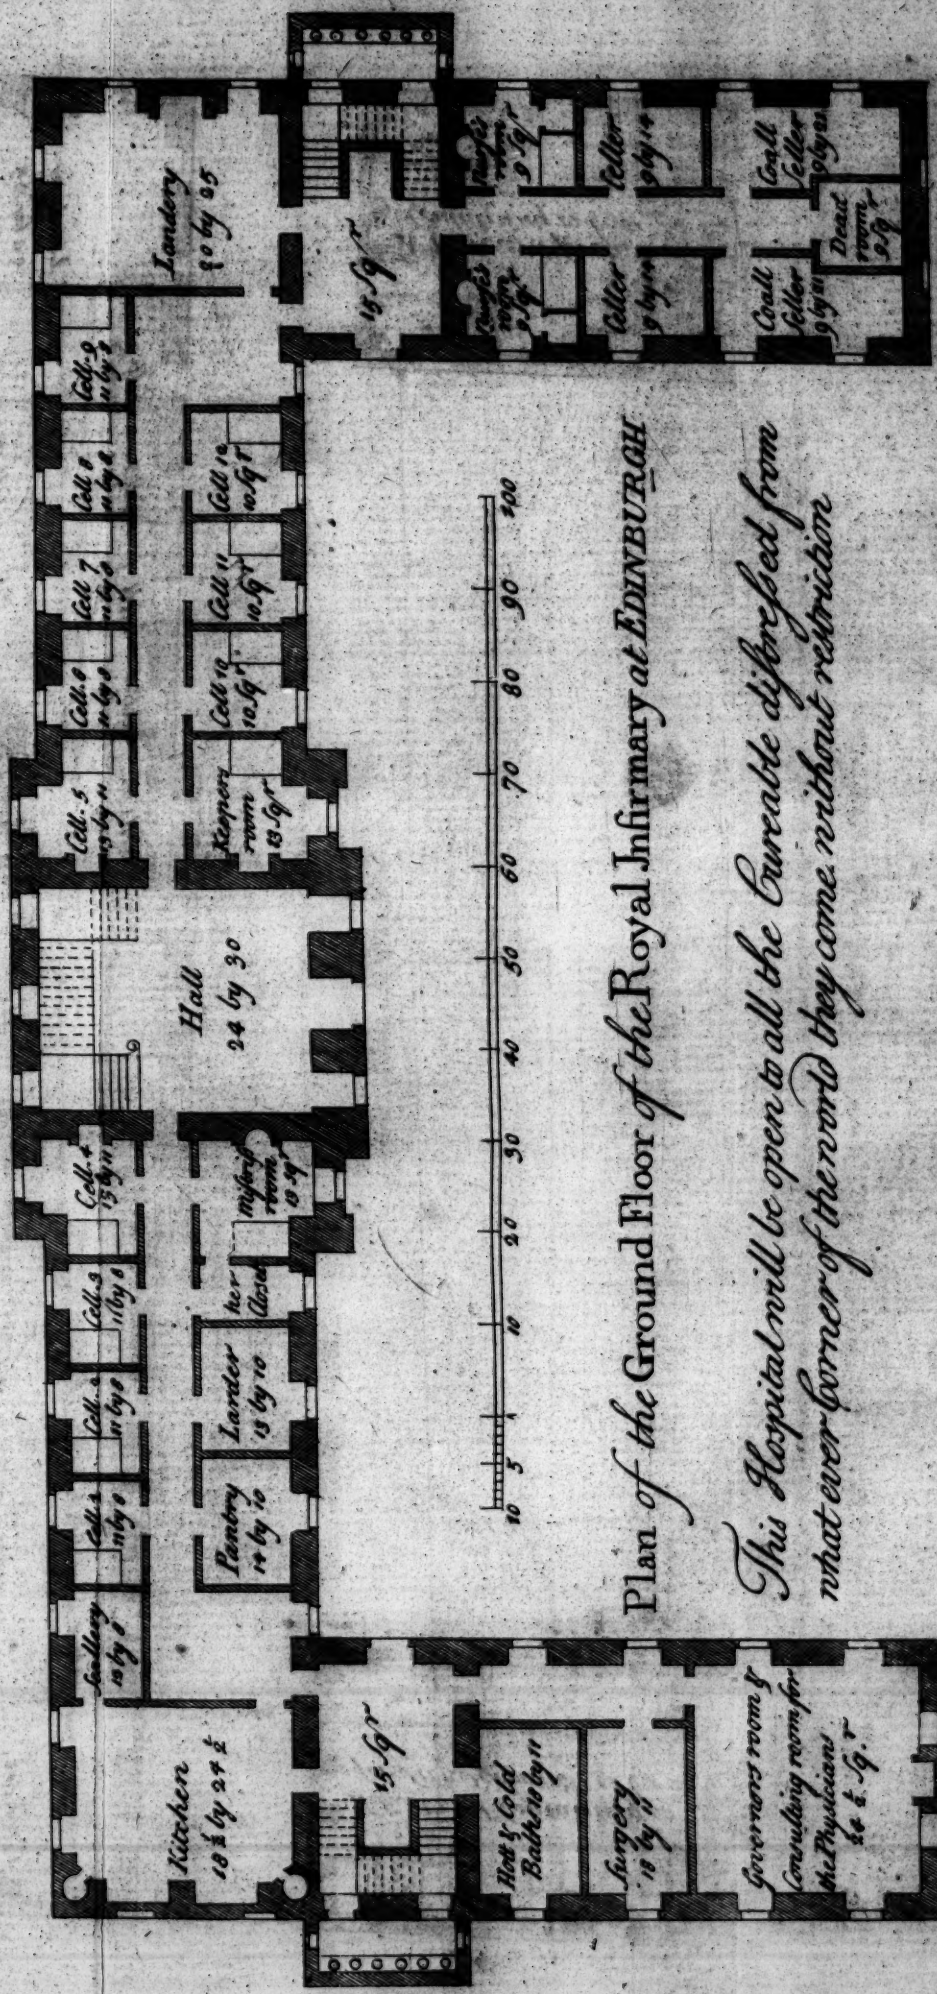 Scullery
12 by 8
Cell.
11 by 8
Cell. 2
11 by 8
Cell. 3
11 by 8
Cell. 4
15 by 11
Cell. 5
15 by 11
Cell. 6
11 by 8
Cell. 7
11 by 8
Cell 8
11 by 8
Cell. 9
11 by 8
Kitchen
18 ½ by 24 ½
Hall
24 by 30
Landery
20 by 25
Pantry
14 by 10
Larder
13 by 10
her
Closet
Mistris's
room
13 Sqr
Keepers
room
13 Sqr
Cell 10
10 Sqr
Cell 11
10 Sqr
Cell 12
10 Sqr
15 Sqr
15 Sqr
Hott & Cold
Baths 18 by 11
Surgery
18 by 11
Governors room &
Consulting room for
the Physicians
24 ½ Sq.r
Nurse's
room
9 Sqr
Nurse's
room
9 Sqr
Celler
9 by 14
Celler
9 by 14
Coall
Seller
9 by
Coall
Seller
9 by
Dead
room
9 Sqr
10 5 10 20 30 40 50 60 70 80 90 100
Plan of the Ground Floor of the Royal Infirmary at EDINBURGH
This Hospital will be open to all the Cureable distressed from
what ever Corner of the world they come without restriction